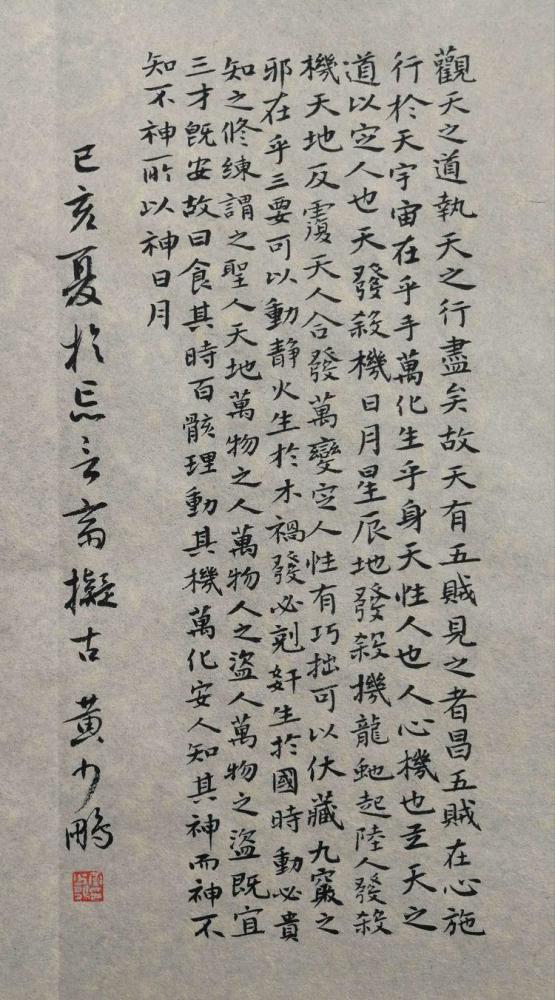 觀天之道執天之行盡矣故天有五賊見之者昌五賊在心施
行於天宇宙在乎手萬化生乎身天性人也人心機也立天之
道以定人也天發殺機日月星辰地發殺機龍虵起陸人發殺
機天地反覆天人合發萬變定人性有巧拙可以伏藏九竅之
邪在乎三要可以動静火生於木禍發必剋奸生於國時動必貴
知之修練謂之聖人天地萬物之人萬物人之盜人萬物之盜既宜
三才既安故曰食其時百骸理動其機萬化安人知其神而神不
知不神所以神日月
己亥夏於忘言斎擬古 黄少鵬